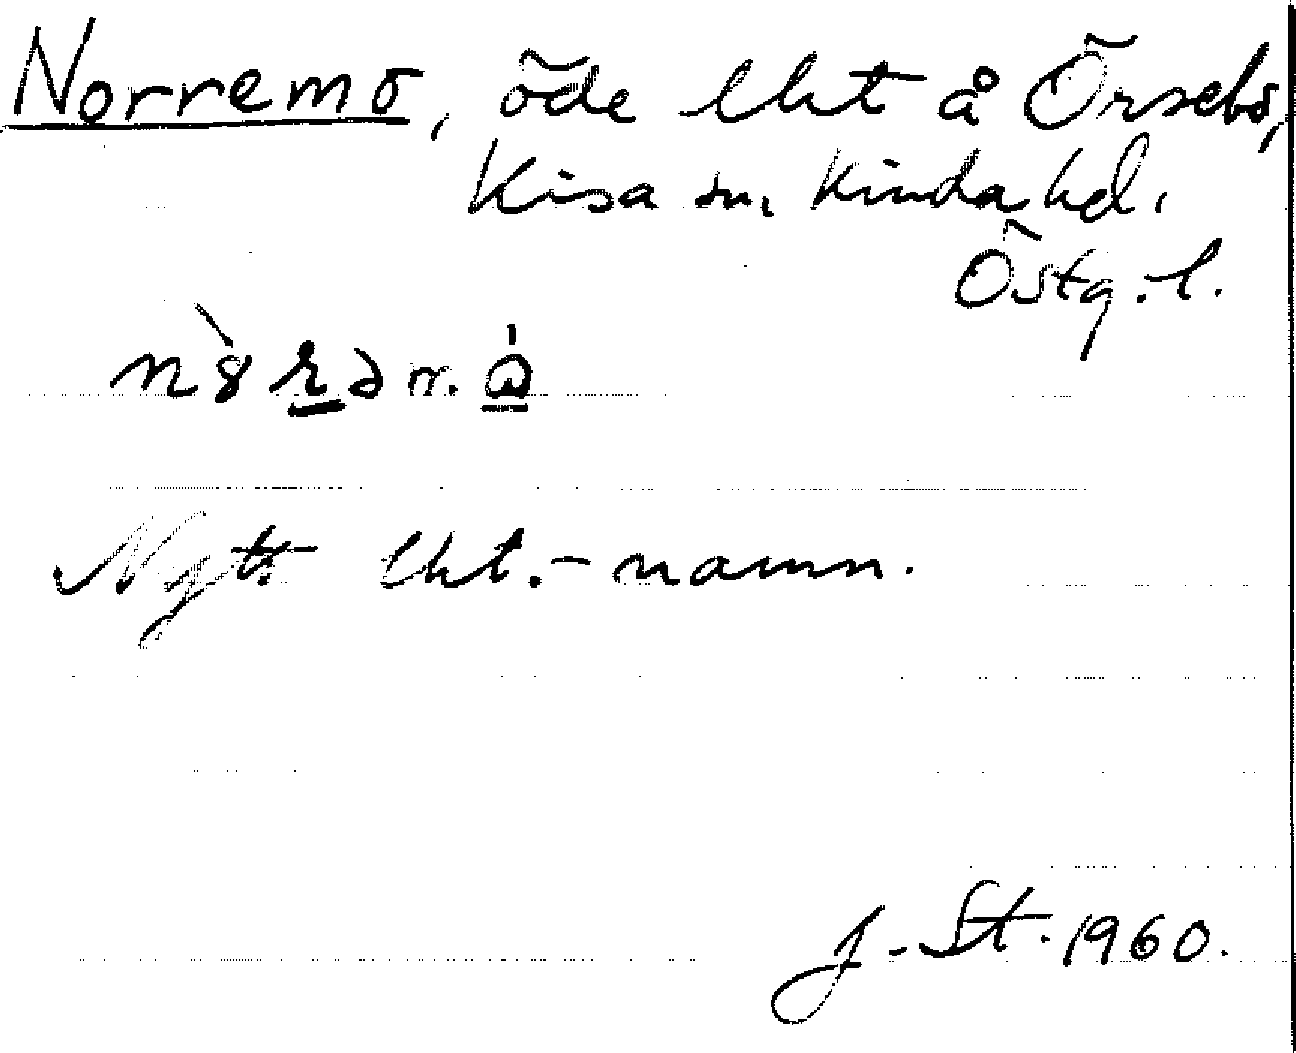 Norremo, öde lht å Örsebo,
Kisa sn, Kinda hd.
Östg. l.
Nytt lht.-namn.
J. St. 1960.